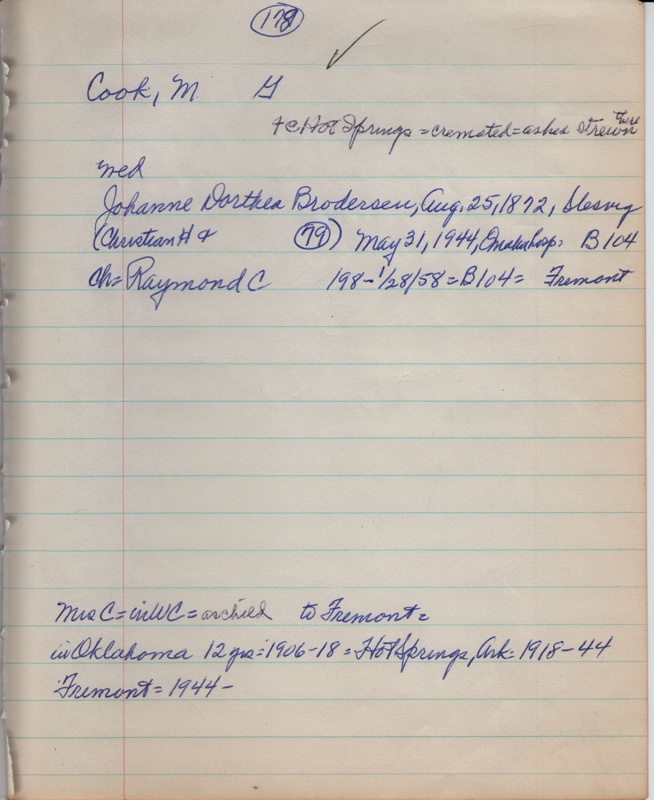 178
Cook, M G
+ c Hot Springs = cremated = ashes strewn there
wed
Johanne Dorthea Brodersen, Aug. 25, 1872, Slesvig
(Christian H + (79) May 31, 1944, Omaha hosp: B104
ch = Raymond C 198 - 1/28/58 = B104 = Fremont
Mrs C = in WC = as child to Fremont =
in Oklahoma 12 yrs: 1906-18 = Hot Springs, Ark: 1918-44
Fremont = 1944-